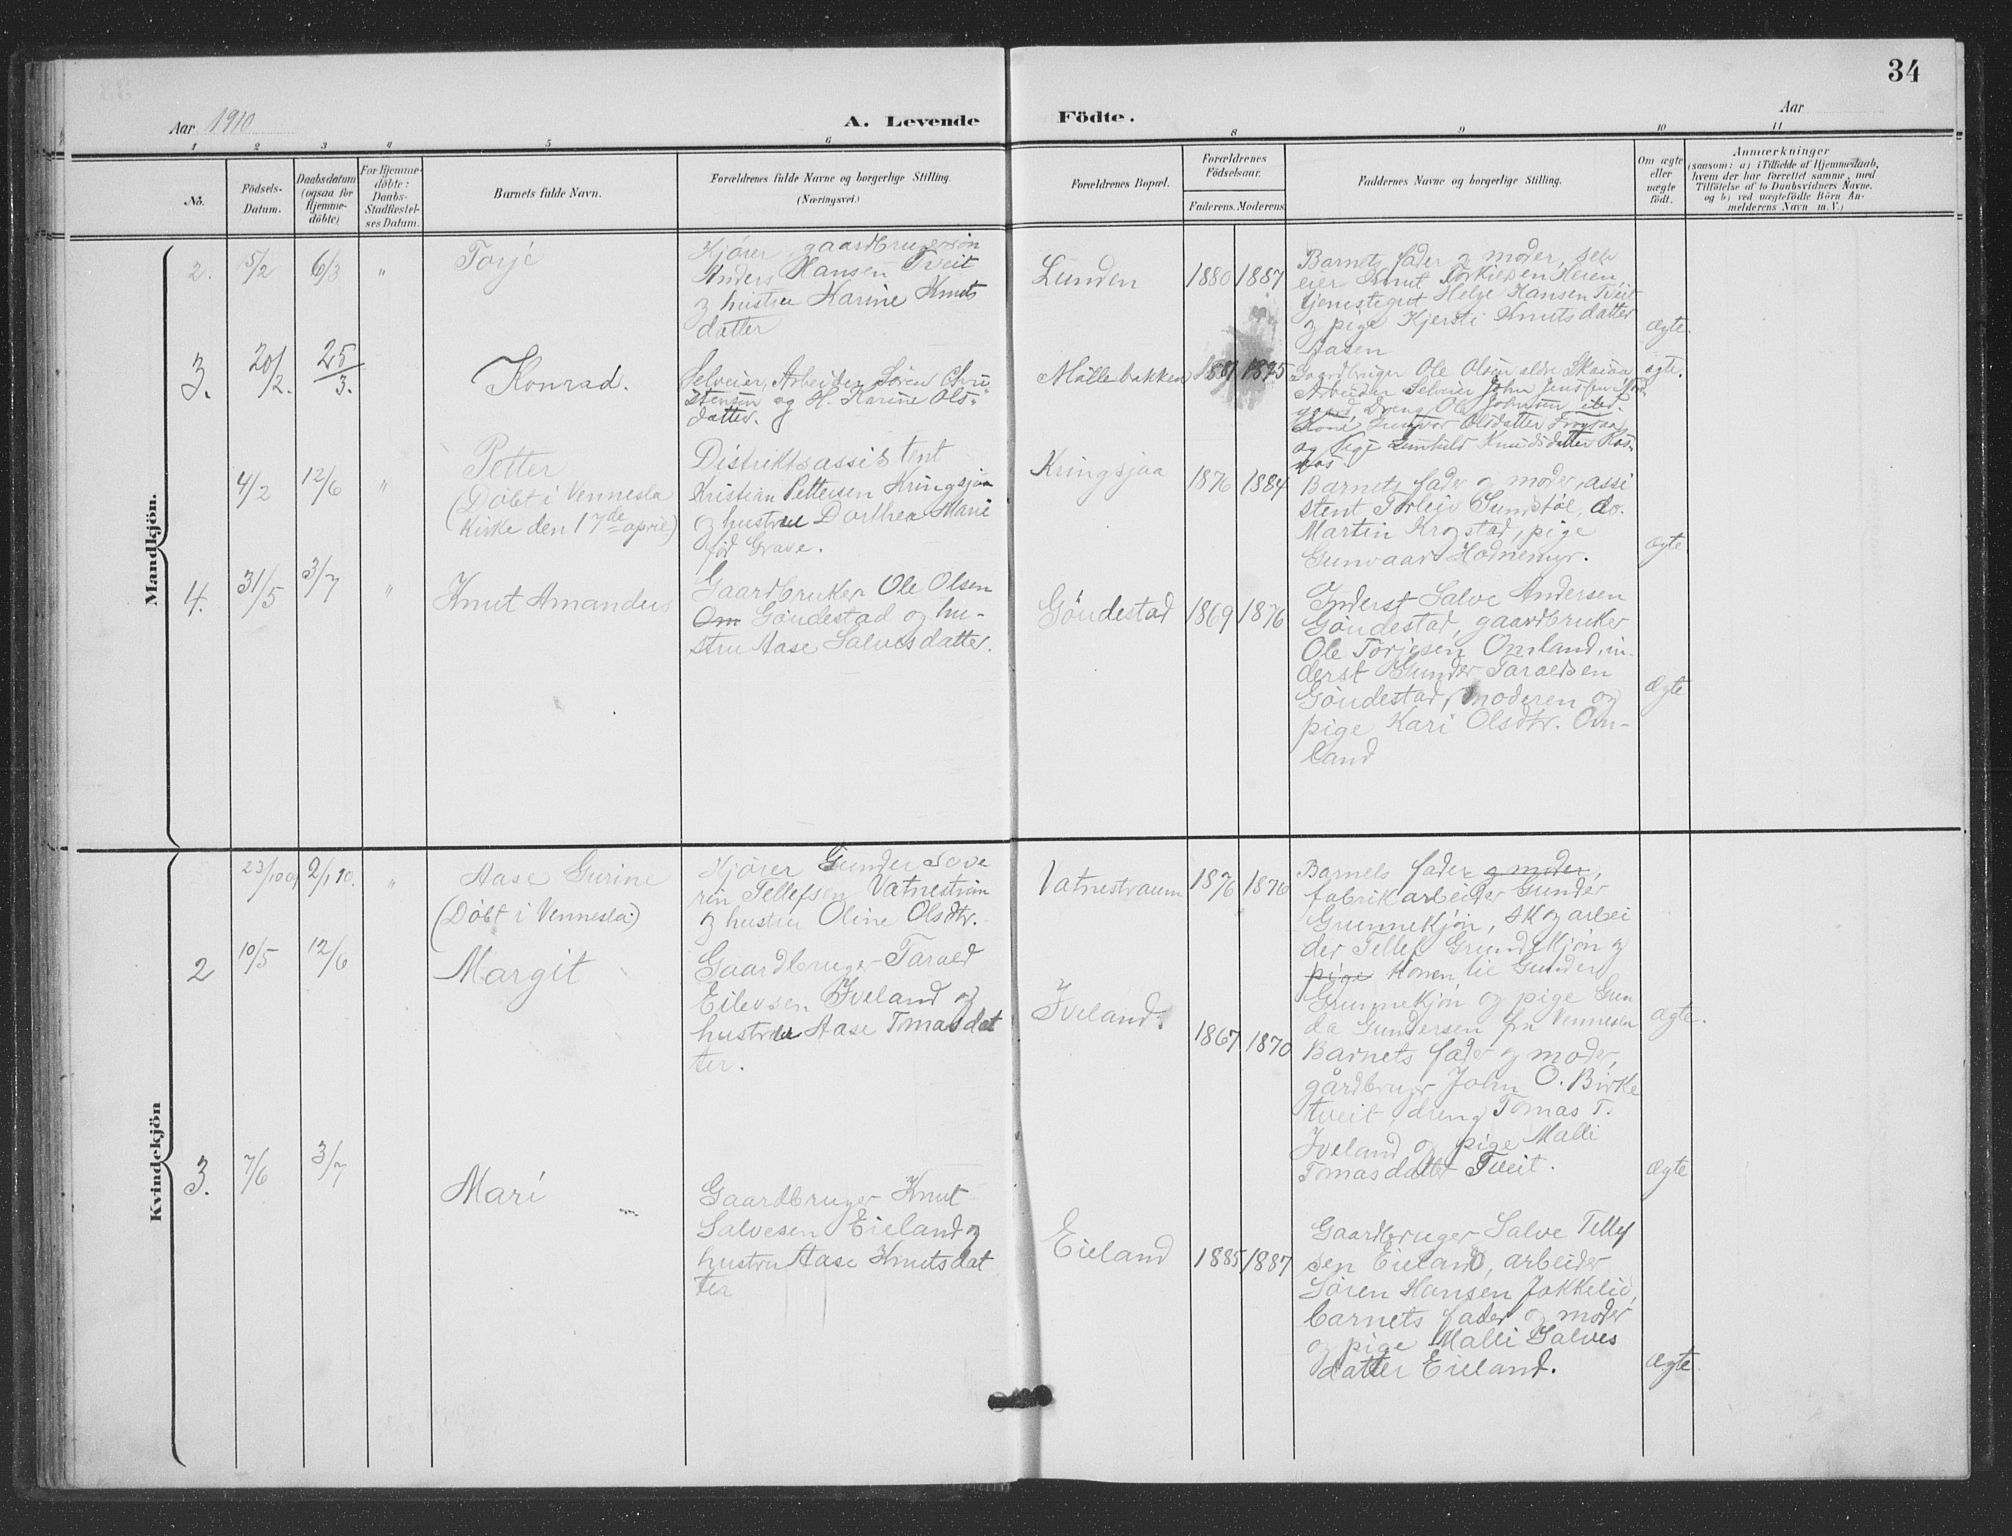 34
Aar 1910
A. Levende Födte.
Aar
1 2 3 4 5 6 8 9 10 11
No.
Födsels-
Datum.
Daabsdatum
(ogsaa for
Hjemme-
döbte)
For Hjemme-
döbte:
Daabs-
Stadfæstel-
ses Datum.
Barnets fulde Navn.
Forældrenes fulde Navne og borgerlige Stilling.
(Næringsvei.)
Forældrenes Bopæl.
Forældrenes
Födselsaar.
Faderens. Moderens.
Faddernes Navne og borgerlige Stilling.
Om ægte
eller
uægte
födt.
Anmærkninger
(saasom: a) i Tilfælde af Hjemmedaab,
hvem der har forrettet samme, med
Tilföielse af to Daabsvidners Navne,
og b) ved uægtefödte Börn An-
melderens Navn m. V.)
Mandkjön.
2. 5/2 6/3 "
Torje
Kjører gaardbrugersön
Anders Hansen Tveit
og hustru Karine Knuts
datter
Lunden
1880 1887
Barnets fader og moder, selv
eier Knut Torkielsen
tjenestegut Helge Hansen Tveit
og pige Kjersti Knutsdatter
Aasen
ægte.
3. 20/2. 25/3.
Konrad.
Selveier, Arbeider Søren Chri
stensen og H. Karine Ols-
datter.
Møllebakken
1875
Gaardbruger Ole Olsen
Arbeider Selveier John
Dreng Ole Johnsen
Gunvor Olsdatter
og Pige Gunhild Knudsdatter
ægte.
4/2 12/6 "
Petter
(Döbt i Vennesla
Kirke den 17de april)
Distriktsassistent
Kristian Pettersen Kringsjaa
og hustru Dorthea Marie
fød Grave.
Kringsjaa
1876 1884
Barnets fader og moder, assi
stent Torleiv Sundtöl, do.
Martin Krogstad, pige
Gunvaar Hodnemyr.
ægte
4. 31/5 3/7 "
Knut Amandus
Gaardbruker Ole Olsen
Om Göudestad og hu-
stru Aase Salvesdatter.
Göudestad
1869 1876
Inderst Salve Andersen
Göudestad, gaardbruker
Ole Torjesen Omland, in-
derst Gunder Taraldsen
Göudestad, moderen og
pige Kari Olsdtr. Om-
land
Ægte
Kvindekjön
23/10 09 2/1 10. "
Aase Gurine
(Döbt i Vennesla)
Kjører Gunder Seve
rin Tellefsen Vatnestrøm
og hustru Oline Olsdtr.
Vatnestraum
1876 1876
Barnets fader og moder,
fabrikarbeider Gunder
Grunnekjön, skogarbei
der Tellef Grundekjön og
pige Konen til Gunder
Grunnekjön og pige Gun
da Gundersen fra Vennesla
ægte.
2 10/5 12/6
Margit
Gaardbruger Tarald
Eilevsen Iveland og
hustru Aase Tomasdat
ter.
Iveland.
1867 1870
Barnets fader og moder,
gårdbruger John O. Birke
tveit, dreng Tomas T.
Iveland og pige Malli
Tomasdatter Tveit.
Ægte
3. 7/6 3/7
Mari
Gaardbruger Knut
Salvesen Eieland og
hustru Aase Knutsdat
ter
Eieland
1885 1887
Gaardbruger Salve Tellef
sen Eieland, arbeider
Søren Hansen Jokkelie,
barnets fader og moder
og pige Malli Salves
datter Eieland.
Ægte